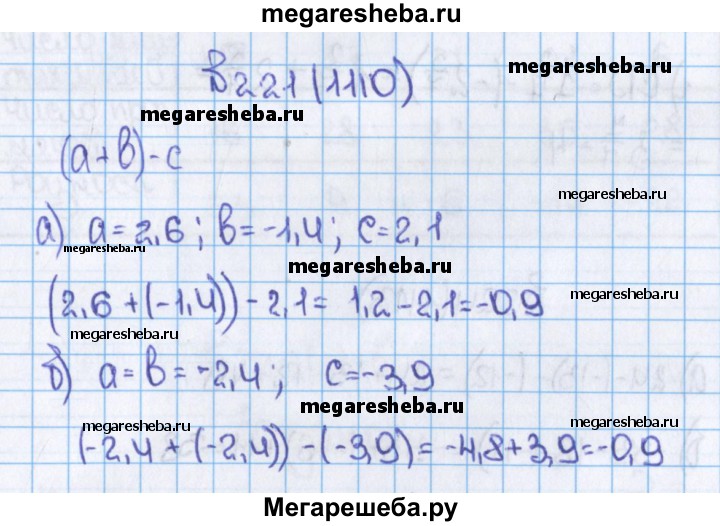 megaresheba.ru
В221(1110)
megaresheba.ru
megaresheba.ru
(а+в)-с
megaresheba.ru
а) а=2,6; в=-1,4; с=2,1
megaresheba.ru
megaresheba.ru
(2,6+(-1,4))-2,1= 1,2-2,1=-0,9
megaresheba.ru
megaresheba.ru
б) а=в=-2,4; с=-3,9
megaresheba.ru
megaresheba.ru
megaresheba.ru
(-2,4+(-2,4))-(-3,9)=-4,8+3,9=-0,9
Мегарешеба.ру